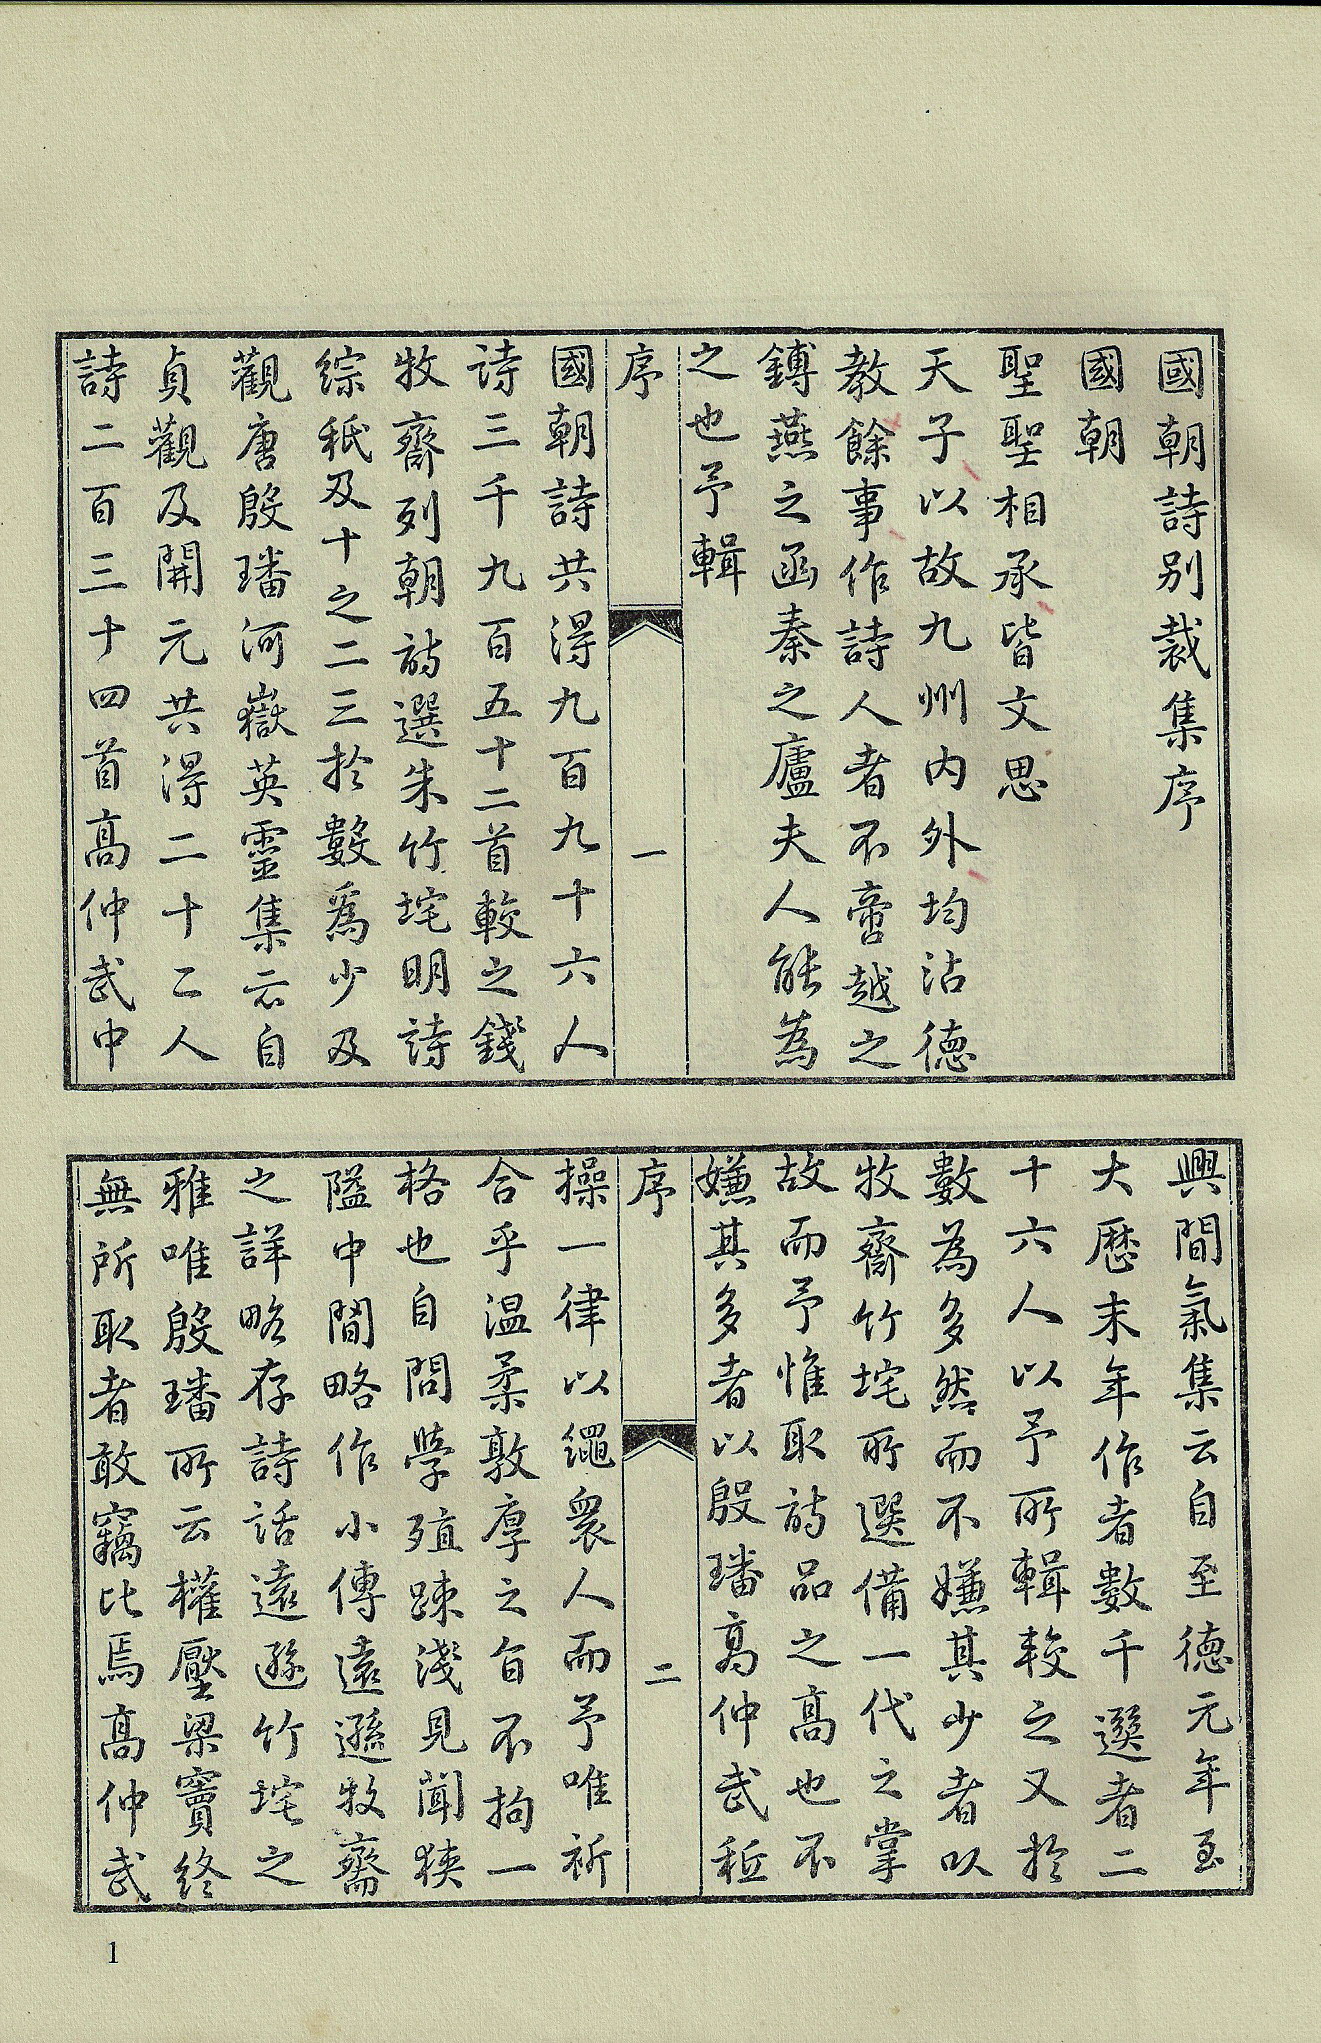 國朝詩別裁集序
國朝
聖聖相承皆文思
天子以故九州内外均沾德
教餘事作詩人者不啻越之
鏄燕之函秦之廬夫人能為
之也予輯
序
一
國朝詩共得九百九十六人
詩三千九百五十二首較之錢
牧齋列朝詩選朱竹垞明詩
綜秖及十之二三於數爲少及
觀唐殷璠河嶽英靈集云自
貞觀及開元共得二十二人
詩二百三十四首高仲武中
興間氣集云自至德元年至
大厯末年作者數千選者二
十六人以予所輯較之又於
數為多然而不嫌其少者以
牧齋竹垞所選備一代之掌
故而予惟取詩品之高也不
嫌其多者以殷璠高仲武秪
序
二
操一律以繩衆人而予唯祈
合乎温柔敦厚之旨不拘一
格也自問學殖踈淺見聞狹
隘中間略作小傳遠遜牧齋
之詳略存詩話遠遜竹垞之
雅唯殷璠所云權壓梁竇終
無所取者敢竊比焉高仲武
1